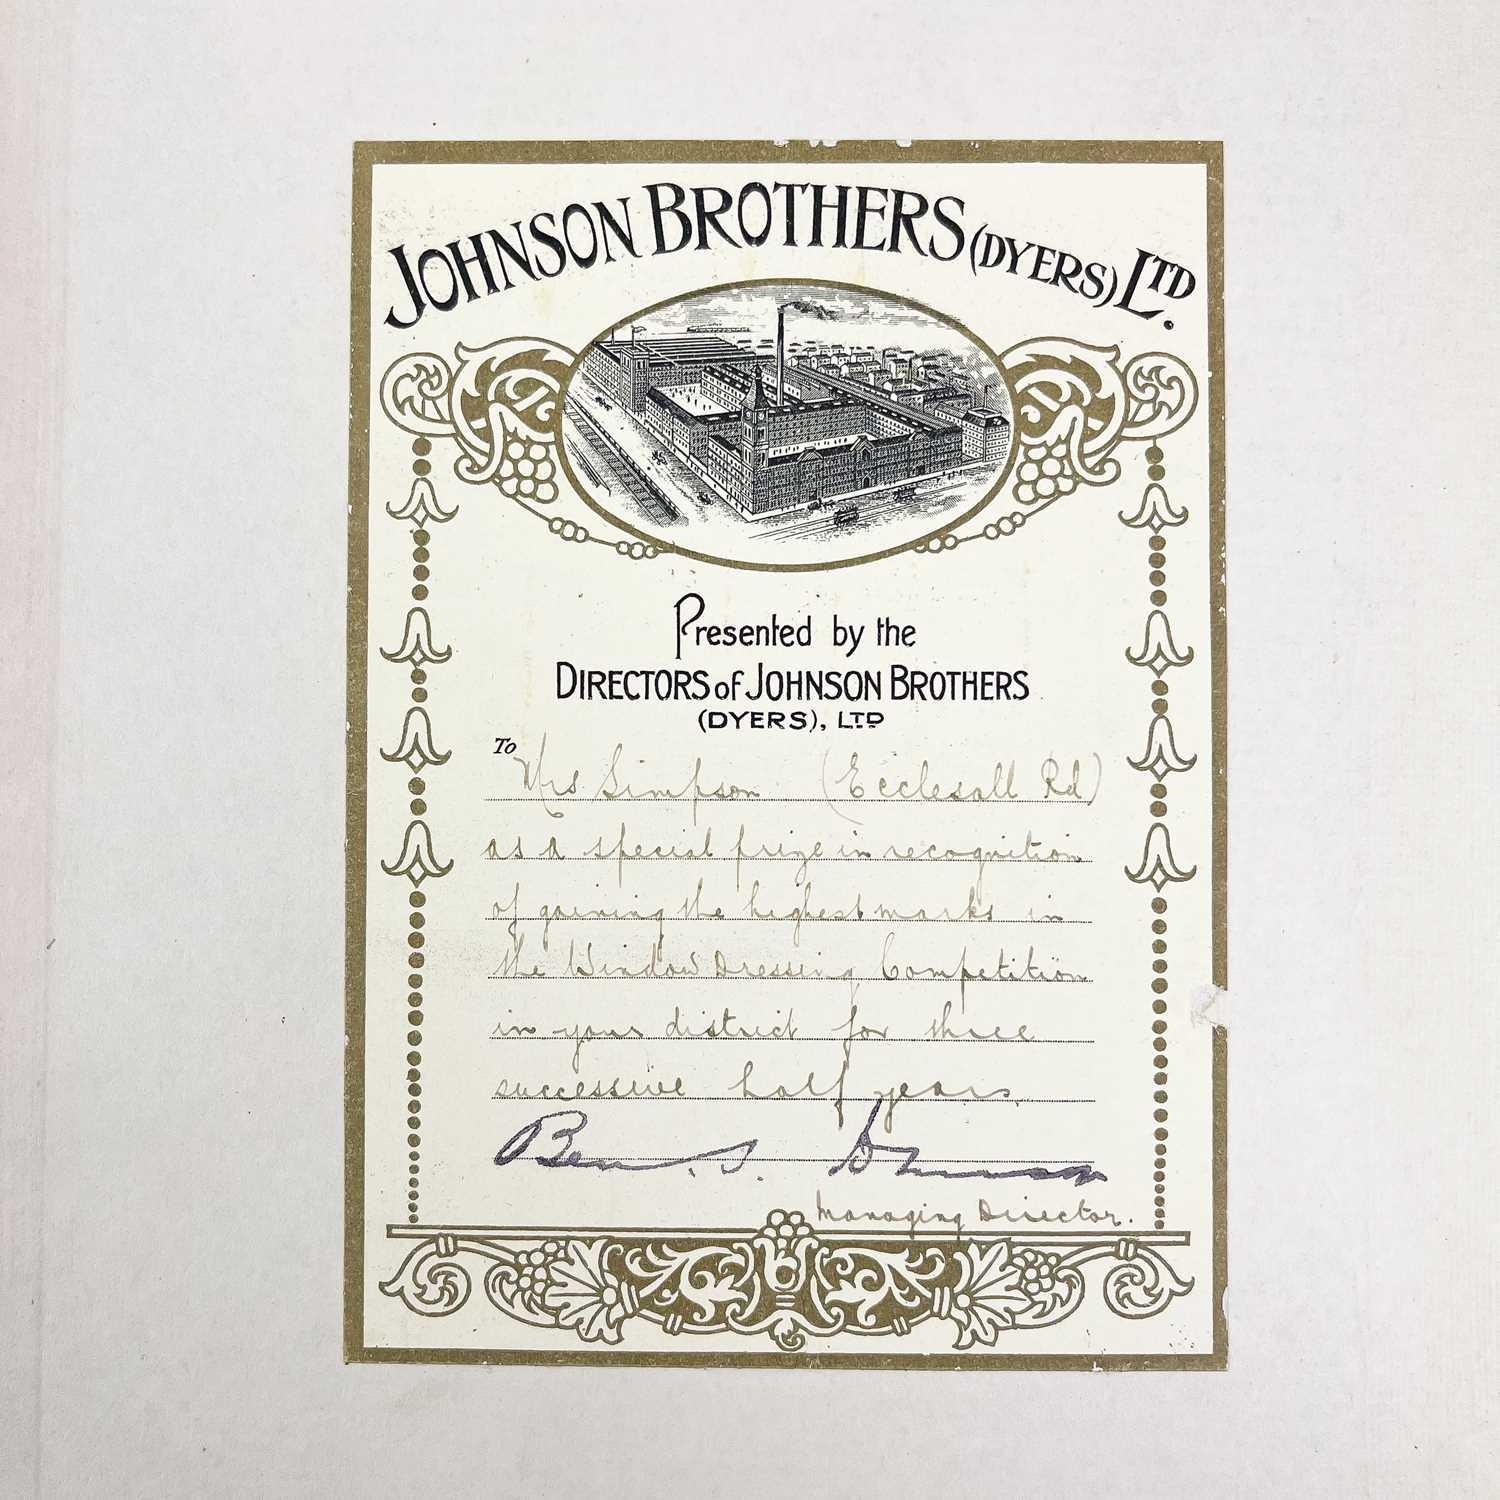 JOHNSON BROTHERS (DYERS) LTD.
Presented by the
DIRECTORS of JOHNSON BROTHERS
(DYERS), LTD
To
Mrs Simpson (Ecclesall Rd)
as a special prize in recognition
of gaining the highest marks in
the Window Dressing Competition
in your district for three
successive half years.
Ben. S. Johnson
Managing Director.